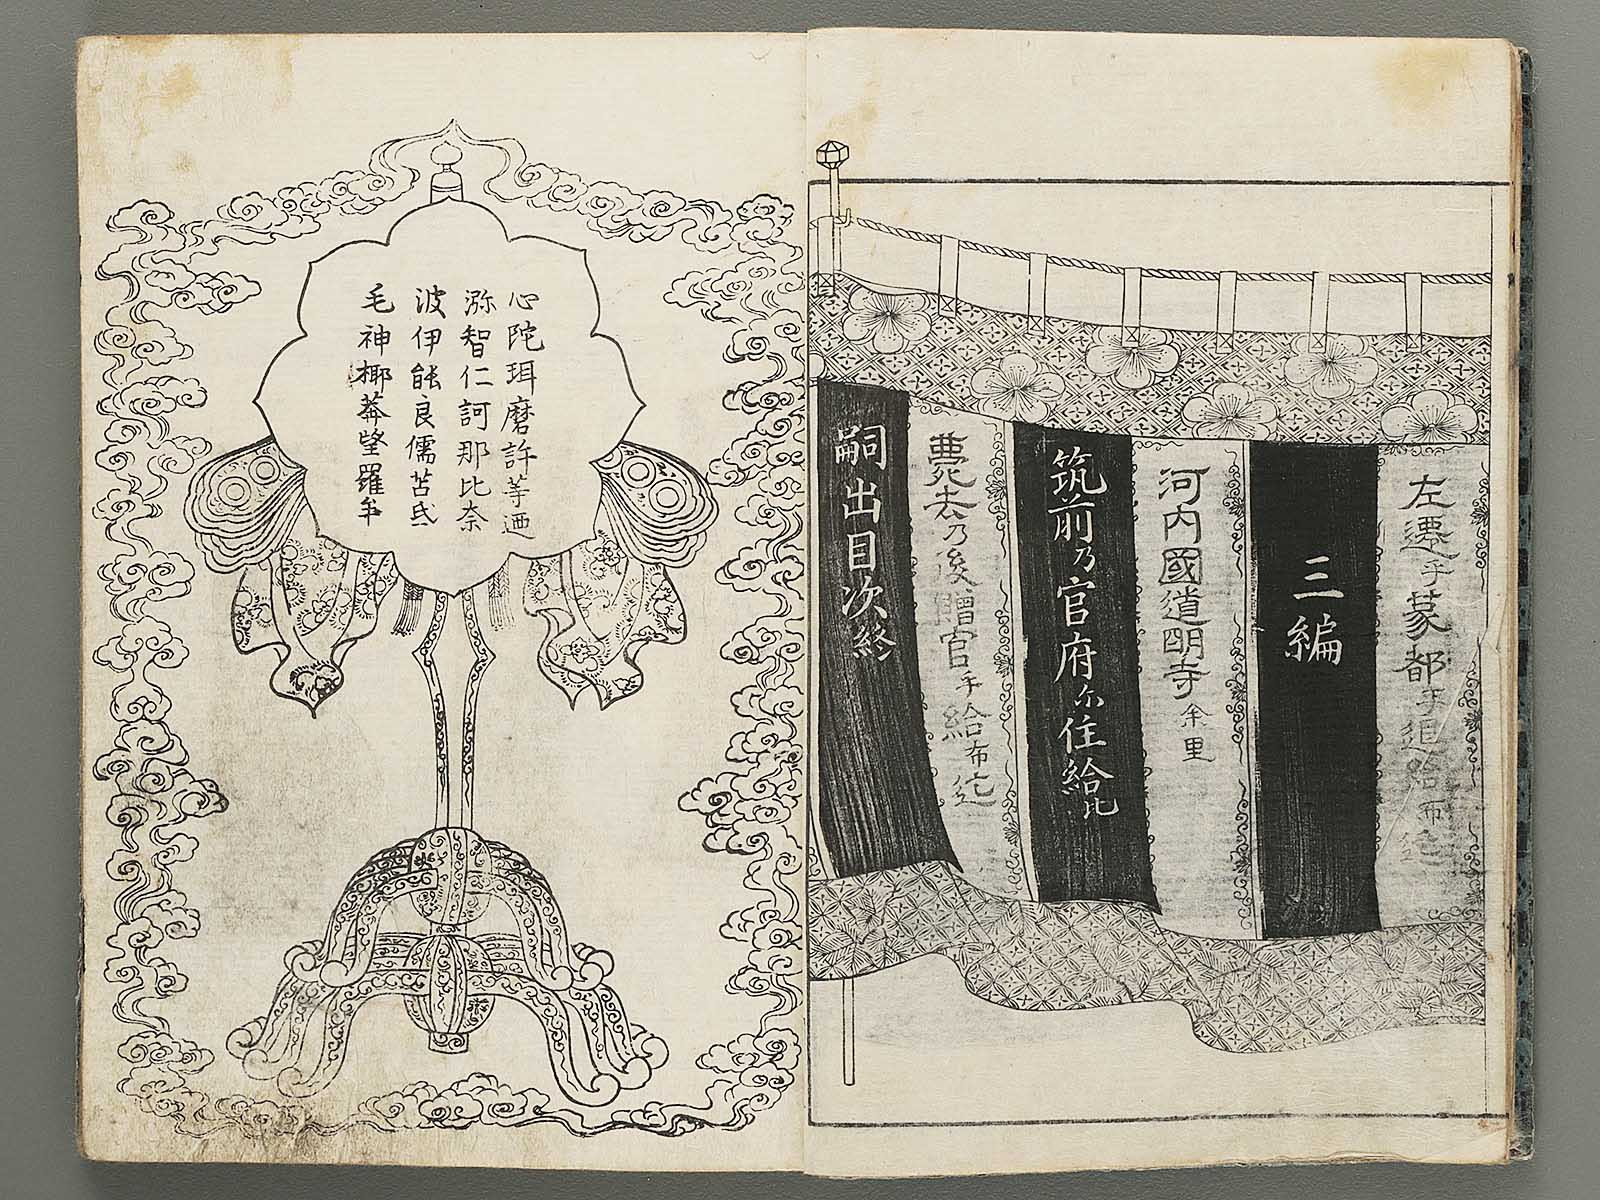 左遷乎蒙都乎退給布迄
三編
河内國道明寺余里
筑前乃官府尓住給比
薨去乃後贈官乎給布迄
嗣出目次終
心陀珥磨許等迺
㳽智仁訶那比奈
波伊能良儒苫氐
毛神椰莽望羅牟